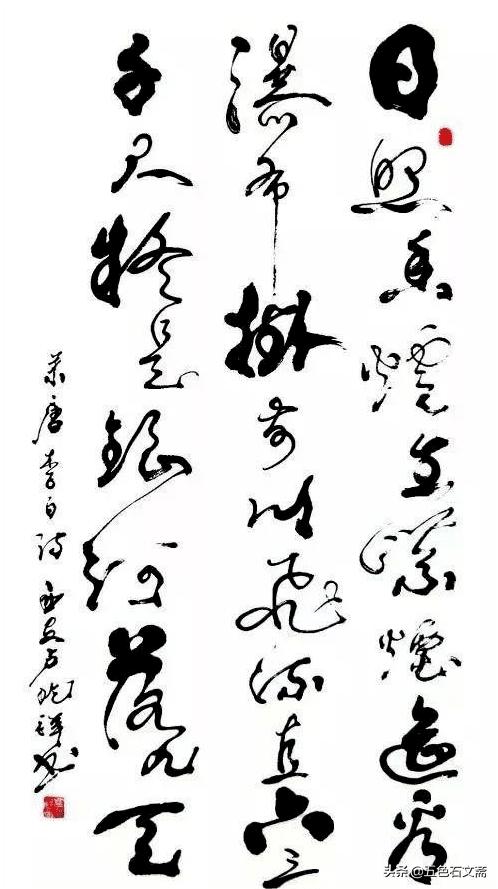 日照香爐生紫煙遙看
瀑布掛前川飛流直下三
千尺疑是銀河落九天
唐李白詩
头条@五色石文斋